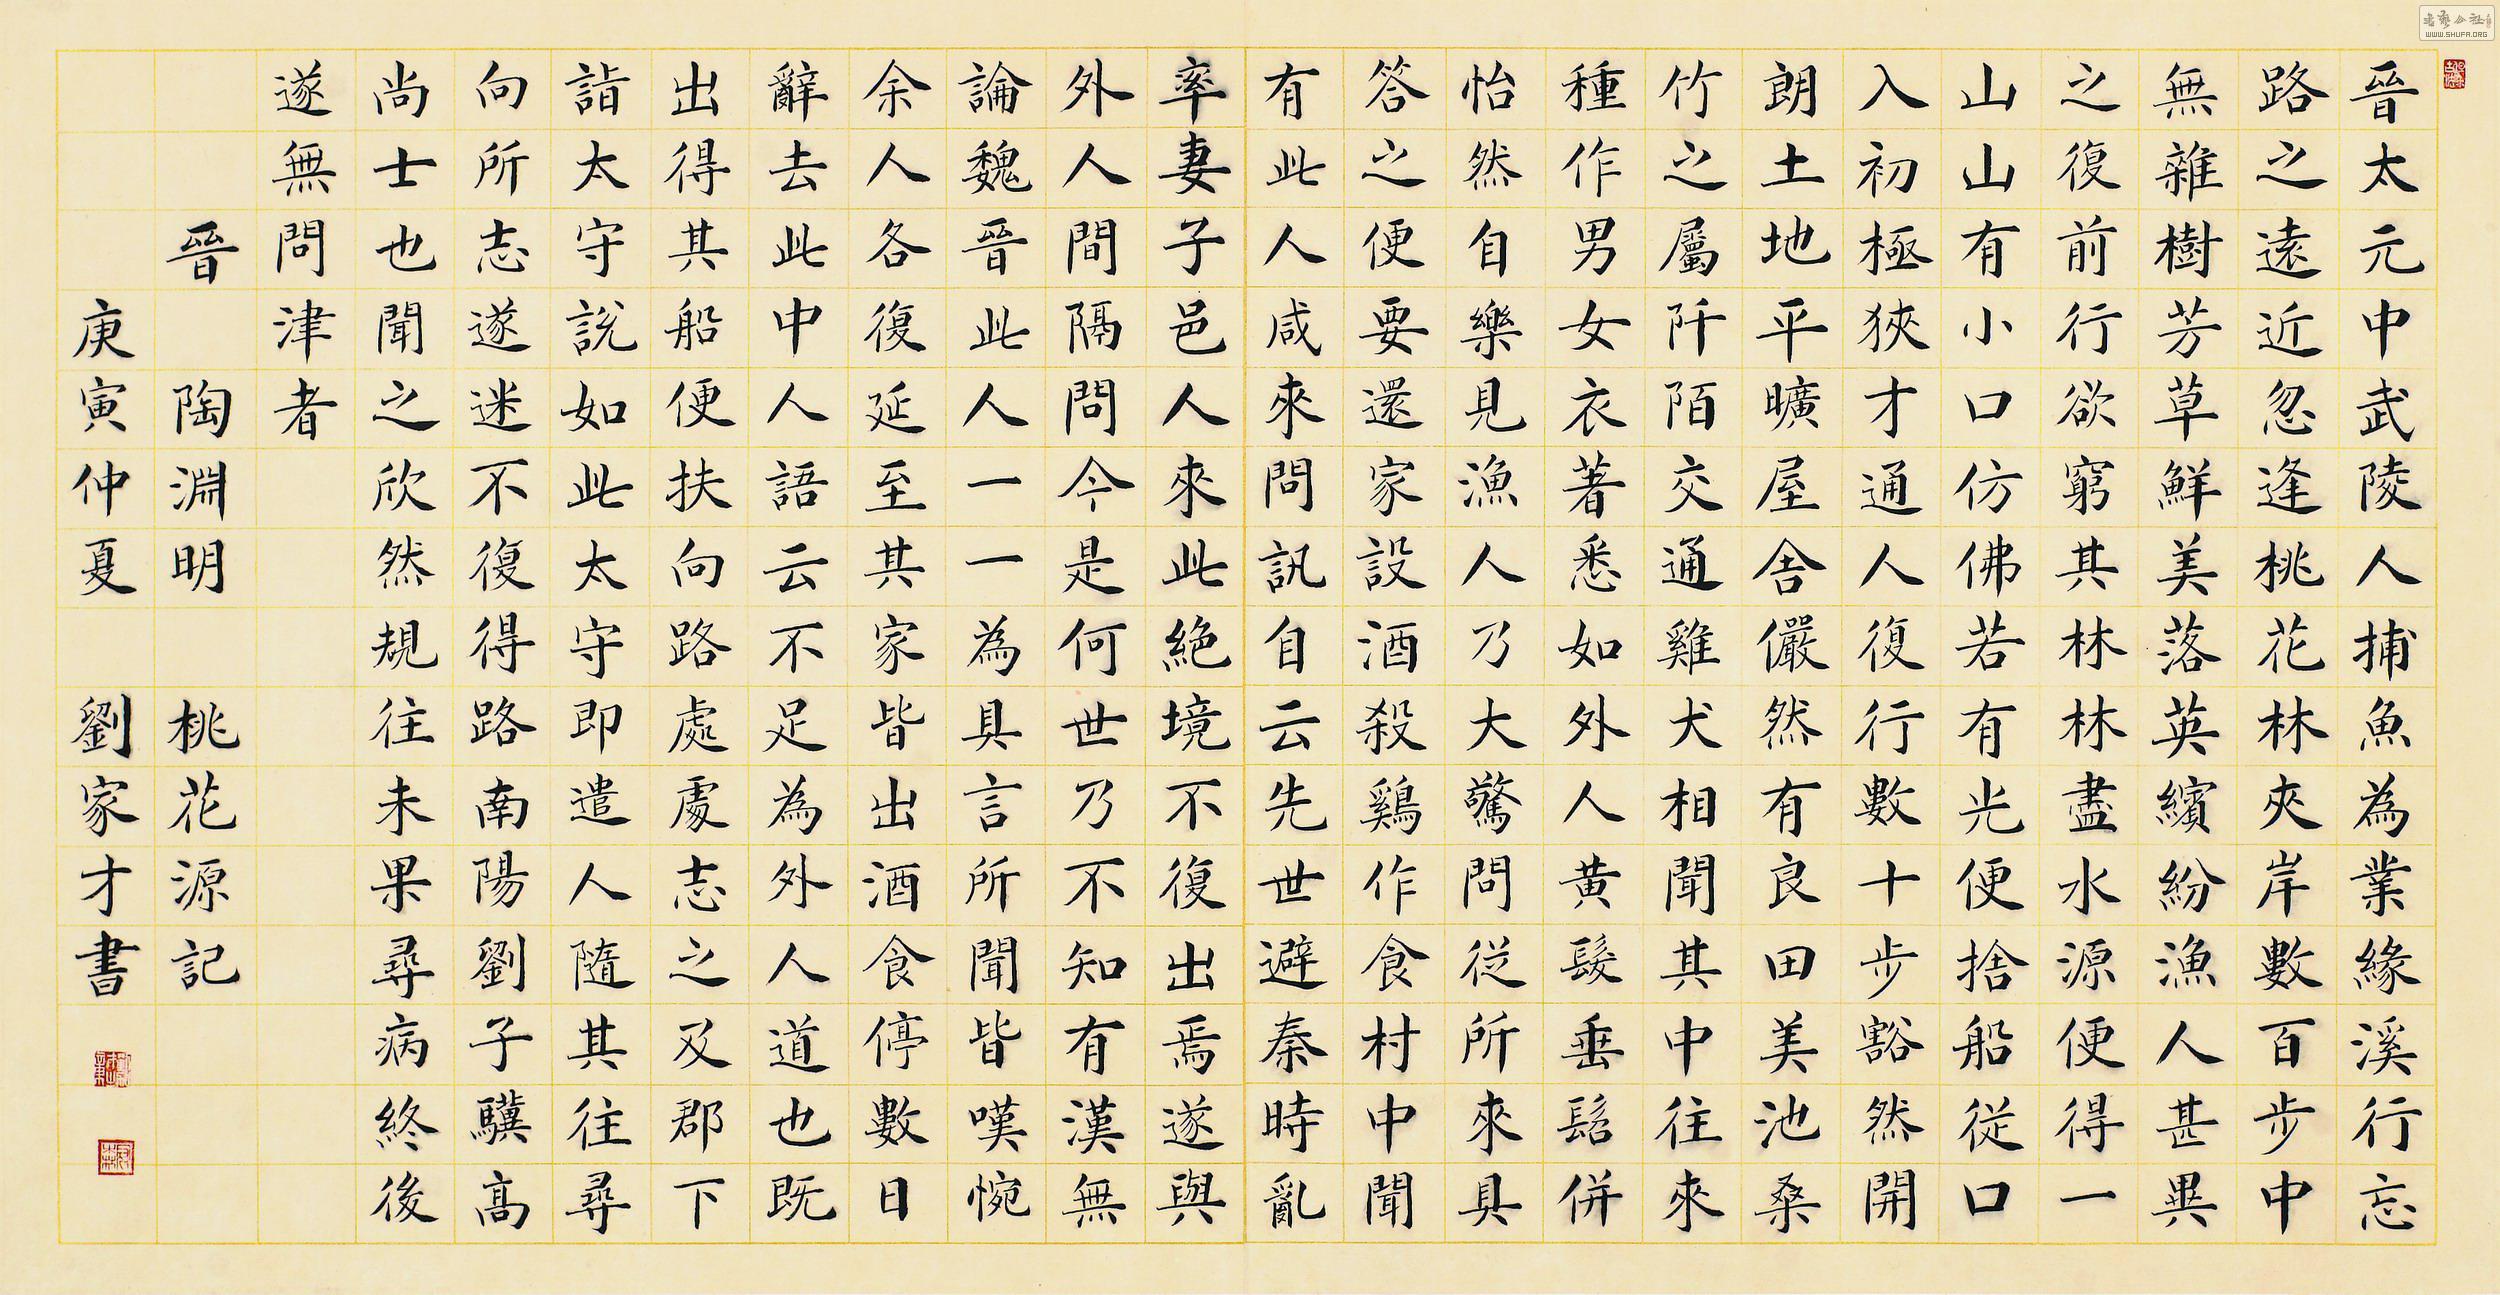 晉太元中武陵人捕魚為業緣溪行忘
路之遠近忽逢桃花林夾岸數百步中
無雜樹芳草鮮美落英繽紛漁人甚異
之復前行欲窮其林林盡水源便得一
山山有小口仿佛若有光便捨船從口
入初極狹才通人復行數十步豁然開
朗土地平曠屋舍儼然有良田美池桑
竹之屬阡陌交通雞犬相聞其中往來
種作男女衣著悉如外人黃髮垂髫併
怡然自樂見漁人乃大驚問所從來具
答之便要還家設酒殺鷄作食村中聞
有此人咸來問訊自云先世避秦時亂
率妻子邑人來此絕境不復出焉遂與
外人間隔問今是何世乃不知有漢無
論魏晉此人一一為具言所聞皆嘆惋
余人各復延至其家皆出酒食停數日
辭去此中人語云不足為外人道也既
出得其船便扶向路處處志之及郡下
詣太守說如此太守即遣人隨其往尋
向所志遂迷不復得路南陽劉子驥高
尚士也聞之欣然規往未果尋病終後
遂無問津者
晉 陶淵明 桃花源記
庚寅仲夏 劉家才書
WWW.SHUFA.ORG